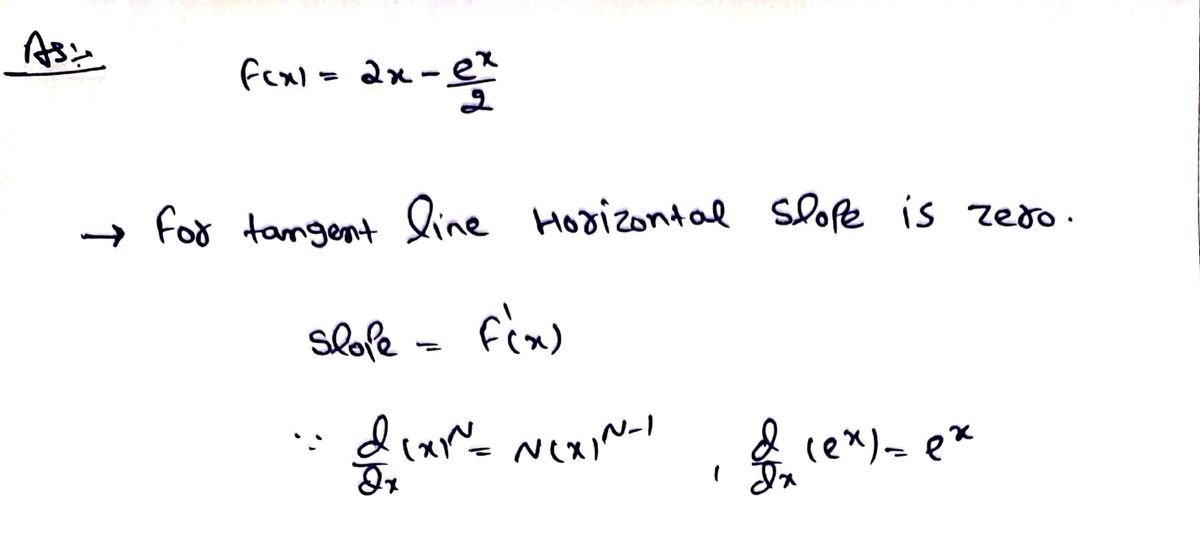 As:-
f(x) = 2x - e^x/2
→ for tangent line Horizontal slope is zero.
slope = f'(x)
∵ d/dx (x)^N = N(x)^N-1 , d/dx (e^x) = e^x